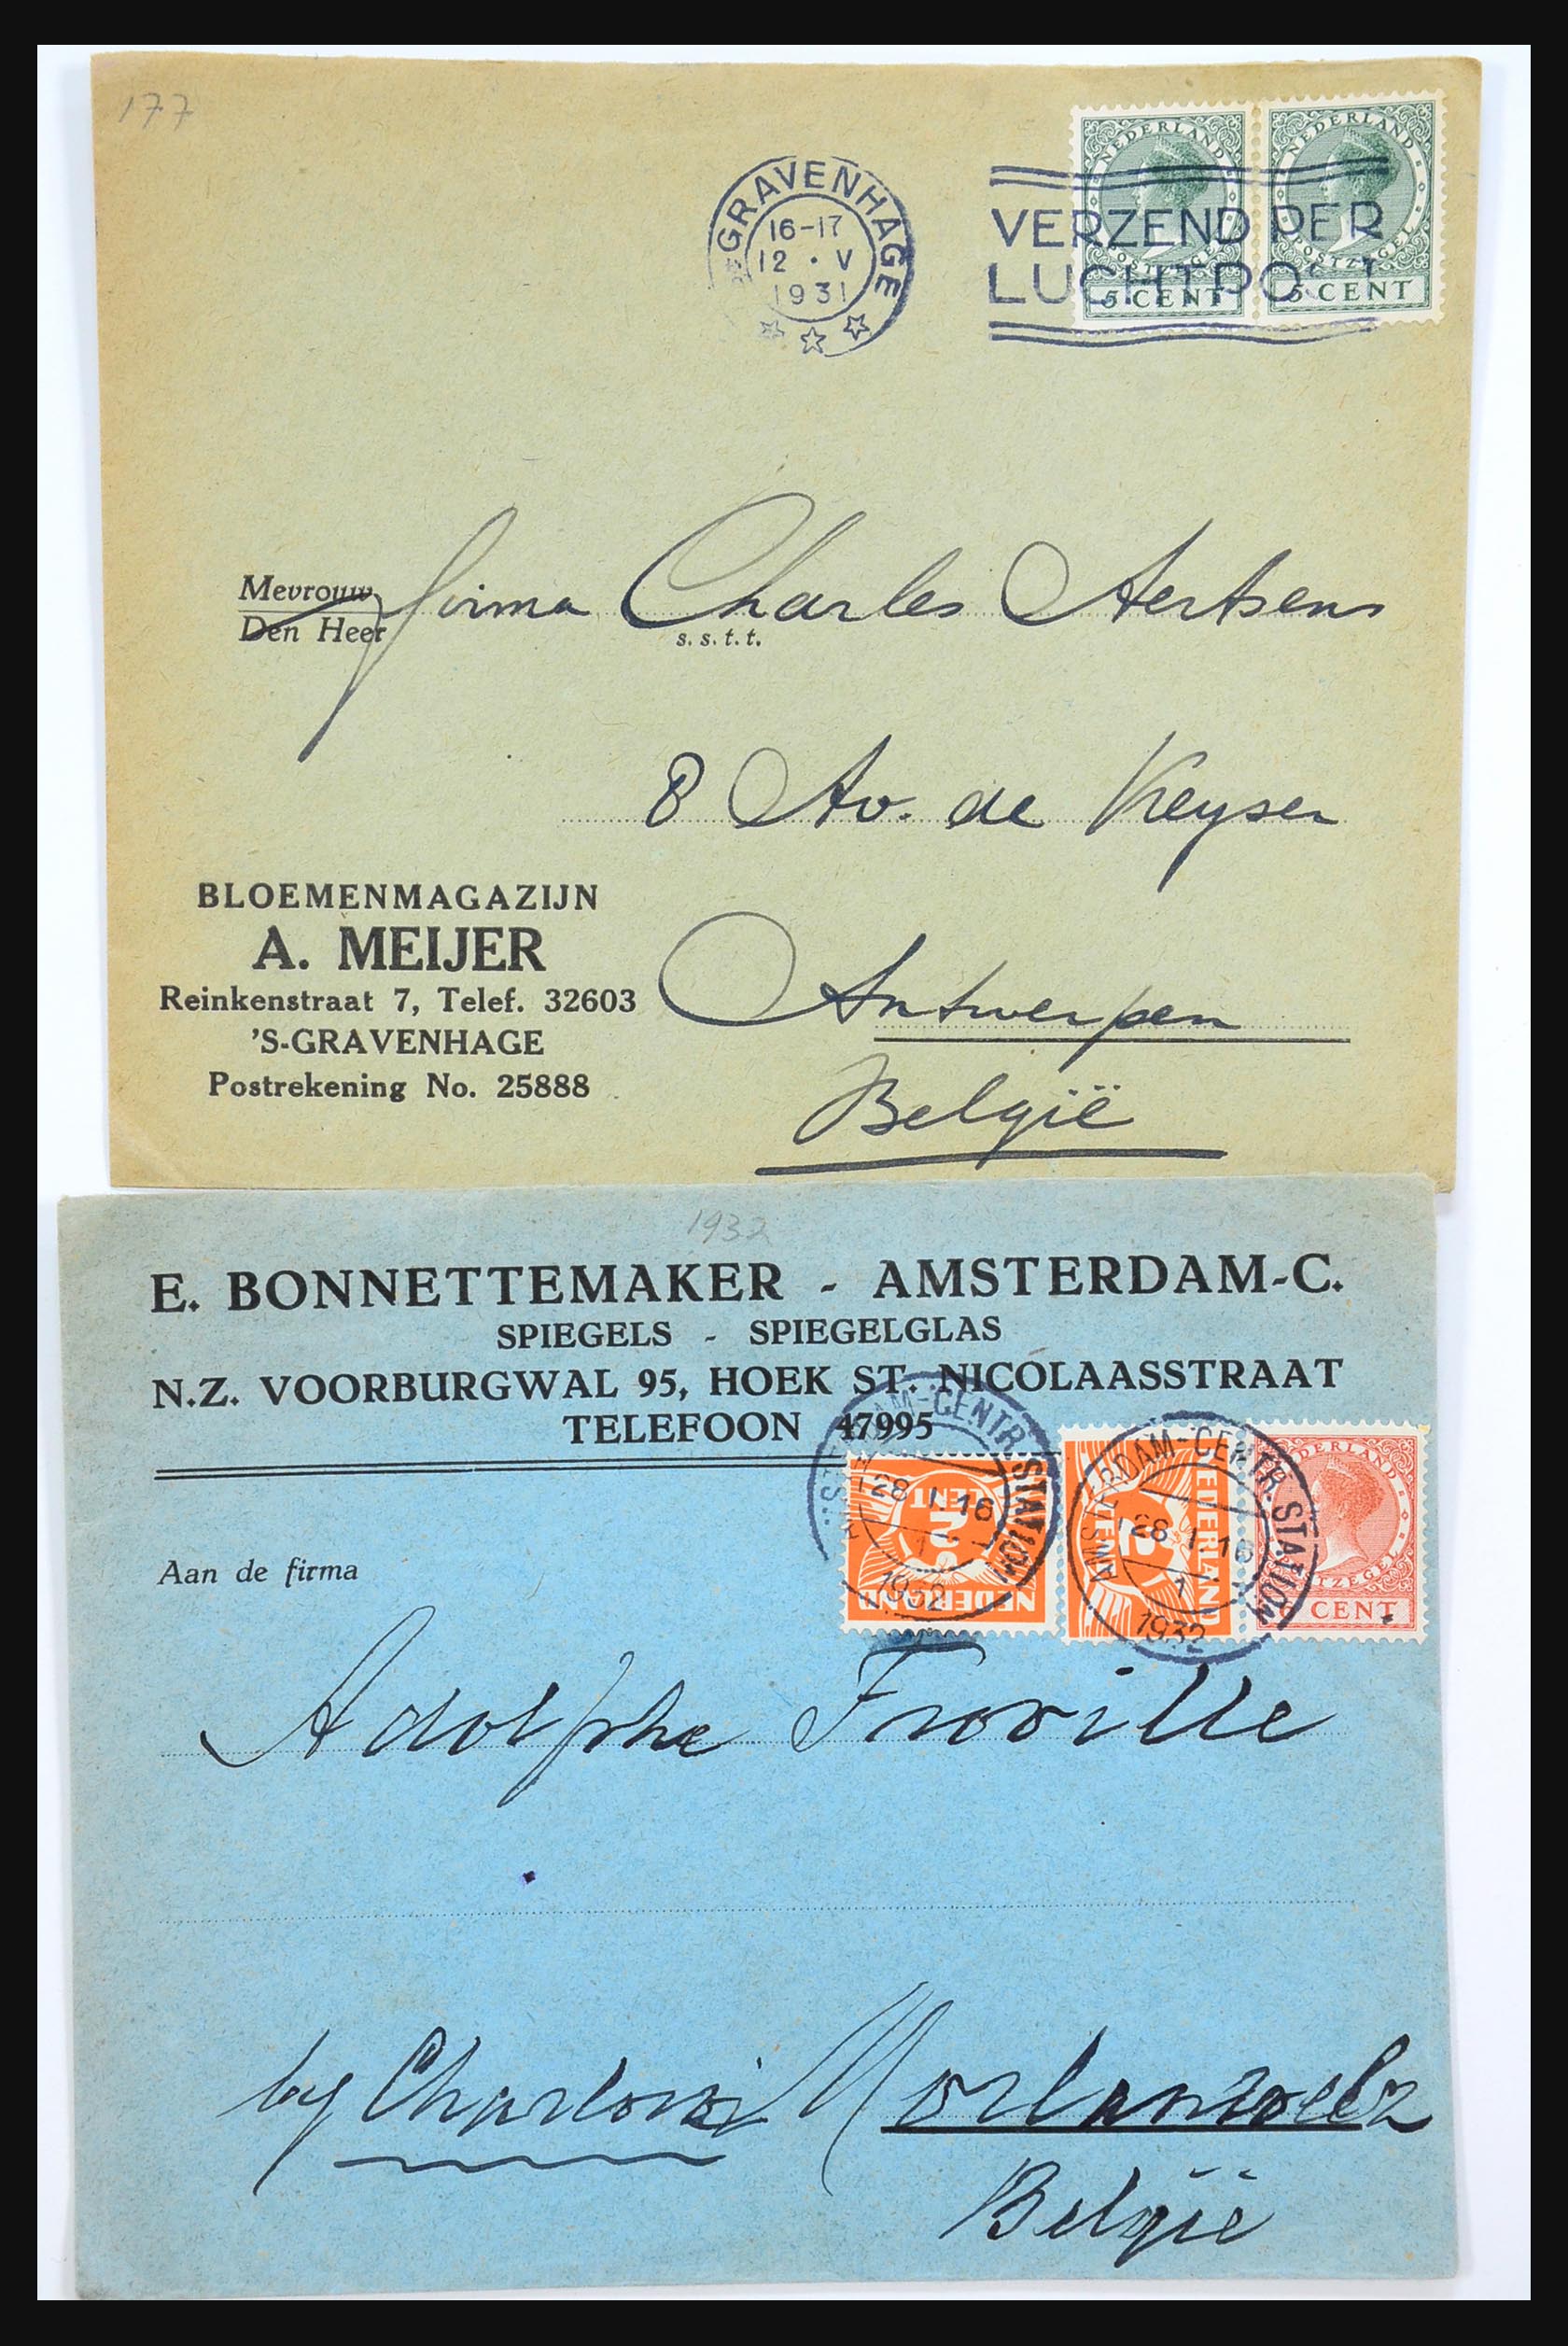 177
'S GRAVENHAGE
16-17
12 · V
1931
VERZEND PER
LUCHTPOST
NEDERLAND
POSTZEGEL
5 CENT
NEDERLAND
POSTZEGEL
5 CENT
Mevrouw
Den Heer
firma Charles Aertsens
s. s. t. t.
8 Av. de Keyser
BLOEMENMAGAZIJN
A. MEIJER
Reinkenstraat 7, Telef. 32603
'S-GRAVENHAGE
Postrekening No. 25888
Antwerpen
België
1932
E. BONNETTEMAKER - AMSTERDAM-C.
SPIEGELS - SPIEGELGLAS
N.Z. VOORBURGWAL 95, HOEK ST. NICOLAASSTRAAT
TELEFOON 47995
AMSTERDAM-CENTR. STATION
28 I. 16
1
1932
2 CENT
NEDERLAND
AMSTERDAM-CENTR. STATION
28 I. 16
1
1932
2 CENT
NEDERLAND
NEDERLAND
POSTZEGEL
6 CENT
Aan de firma
Adolphe
by Charleroi Morlanwelz
België